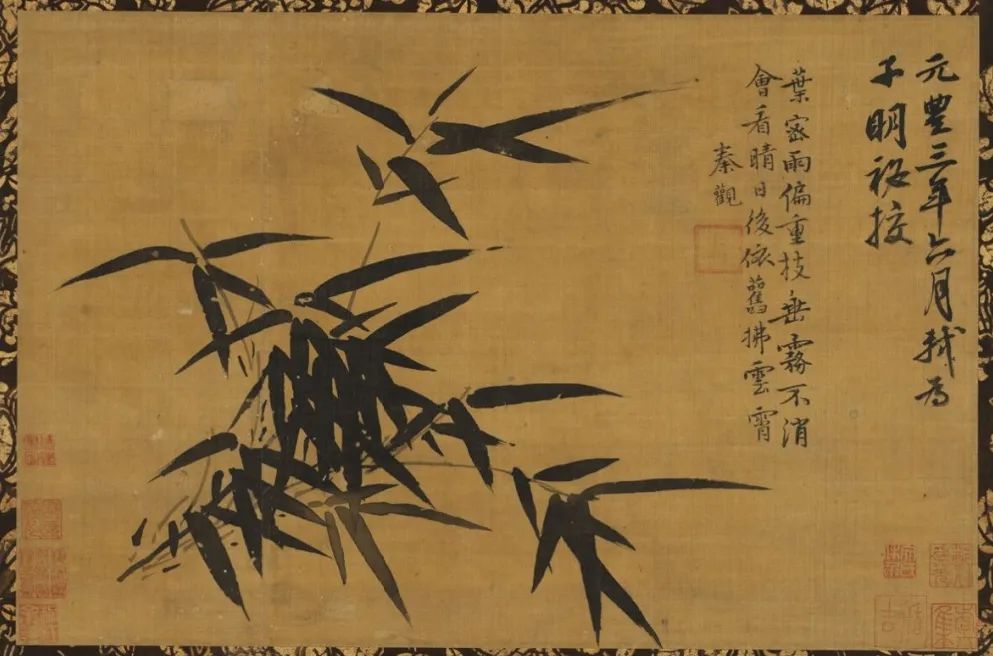 元豐三年六月軾為
子明祕校
葉密雨偏重枝垂霧不消
會看晴日後依舊拂雲霄
秦觀